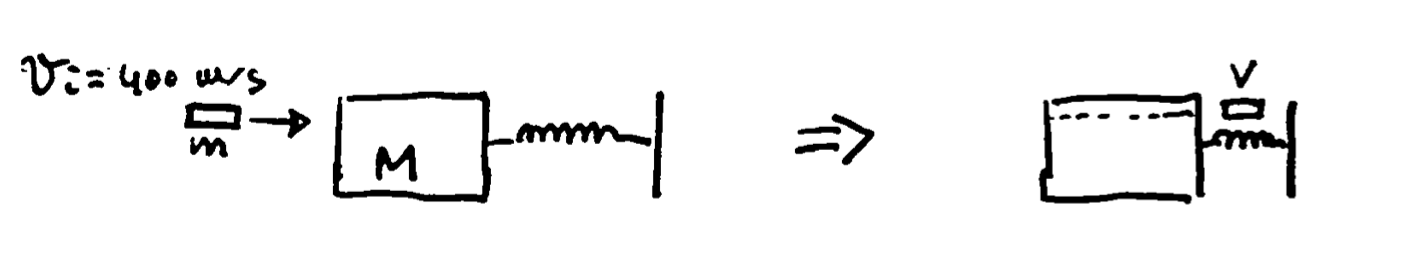 vi = 400 m/s
m
M
V